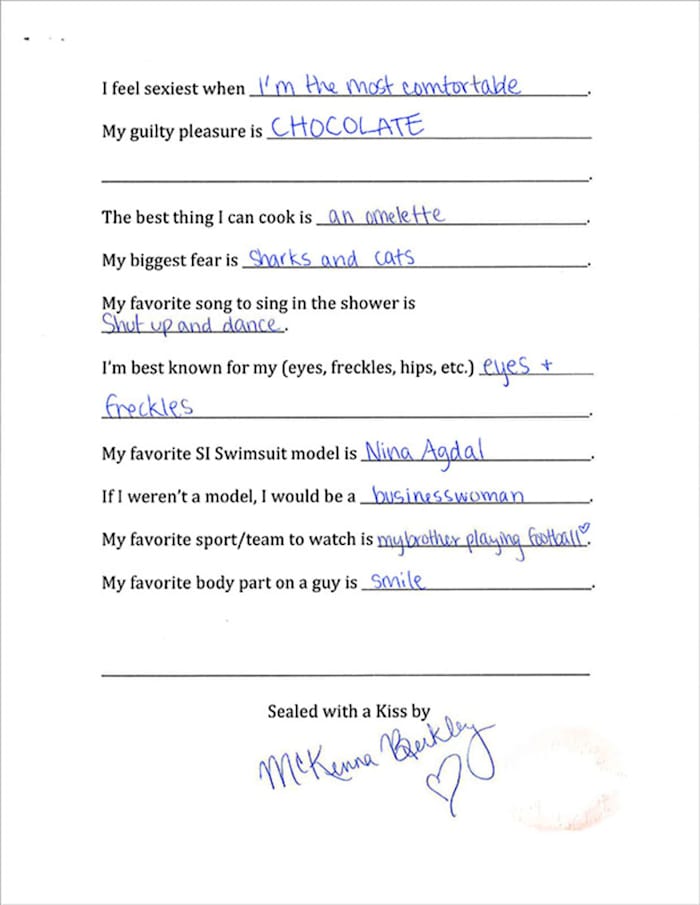 I feel sexiest when I'm the most comfortable.
My guilty pleasure is CHOCOLATE
.
The best thing I can cook is an omelette.
My biggest fear is sharks and cats.
My favorite song to sing in the shower is
Shut up and dance.
I'm best known for my (eyes, freckles, hips, etc.) eyes +
freckles.
My favorite SI Swimsuit model is Nina Agdal.
If I weren't a model, I would be a businesswoman.
My favorite sport/team to watch is my brother playing football♡.
My favorite body part on a guy is smile.
Sealed with a Kiss by
McKenna Berkley
♡